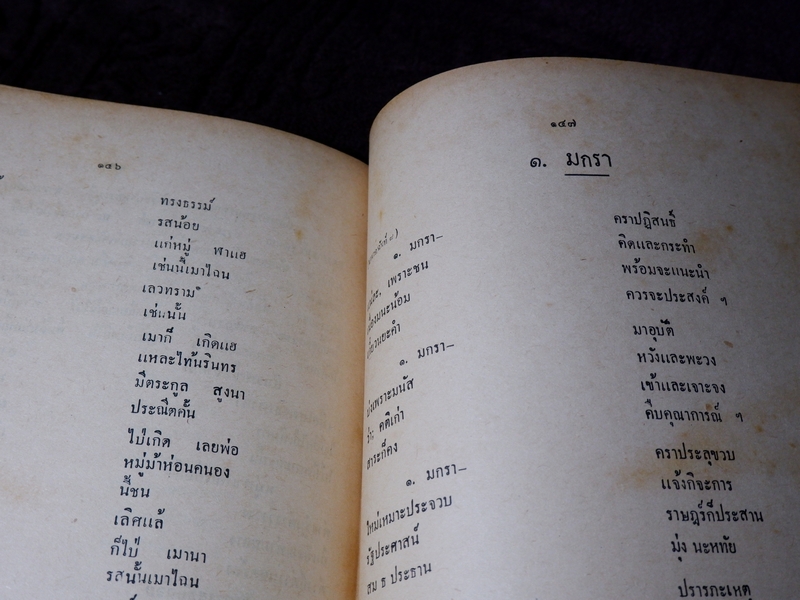 ๑๔๖
ทรงธรรม์
รสน้อย
แก่หมู่ ฬาแฮ
เช่นนี้เมาไฉน
เลวทราม
เช่นนั้น
เมาก็ เกิดแฮ
แหละไท้นรินทร
มีตระกูล สูงนา
ประณีตคั้น
ไป่เกิด เลยพ่อ
หมู่ม้าห่อนคนอง
นี้ชน
เลิศแล้
ก็ไป่ เมานา
รสนั้นเมาไฉน
๑๔๗
๑. มกรา
๑. มกรา–
คราปฏิสนธิ์
เพราะชน
คิดและกระทำ
มนะน้อม
พร้อมจะแนะนำ
ควรจะประสงค์ ฯ
๑. มกรา–
มาอุบัติ
เพราะมนัส
หวังและพะวง
คติเก่า
เช้าและเจาะจง
สาระก็คง
คืบคุณาการณ์ ฯ
๑. มกรา–
คราประลุขวบ
ใหม่เหมาะประจวบ
แจ้งกิจะการ
รัฐประศาสน์
ราษฎร์ก็ประสาน
สม ธ ประธาน
มุ่ง นะหทัย
ปรารภะเหตุ